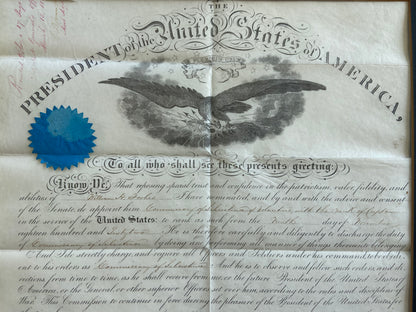 THE
PRESIDENT of the United States of AMERICA,
To all who shall see these presents greeting:
Know Ye, That reposing special trust and confidence in the patriotism, valor, fidelity, and
abilities of William H. I have nominated, and by and with the advice and consent
of the Senate, do appoint him Commissary of Subsistence with the rank of Captain
in the service of the United States: to rank as such from the day of
eighteen hundred and sixty two He is therefore carefully and diligently to discharge the duty
of Commissary of Subsistence by doing and performing all manner of things thereunto belonging.
And I do strictly charge, and require all Officers and Soldiers under his command, to be obedi-
ent to his orders as Commissary of Subsistence And he is to observe and follow such orders, and di-
rections, from time to time, as he shall receive from me, or the future President of the United States of
America, or the General or other superior Officers set over him, according to the rules and discipline of
War. This Commission to continue in force during the pleasure of the President of the United States, for